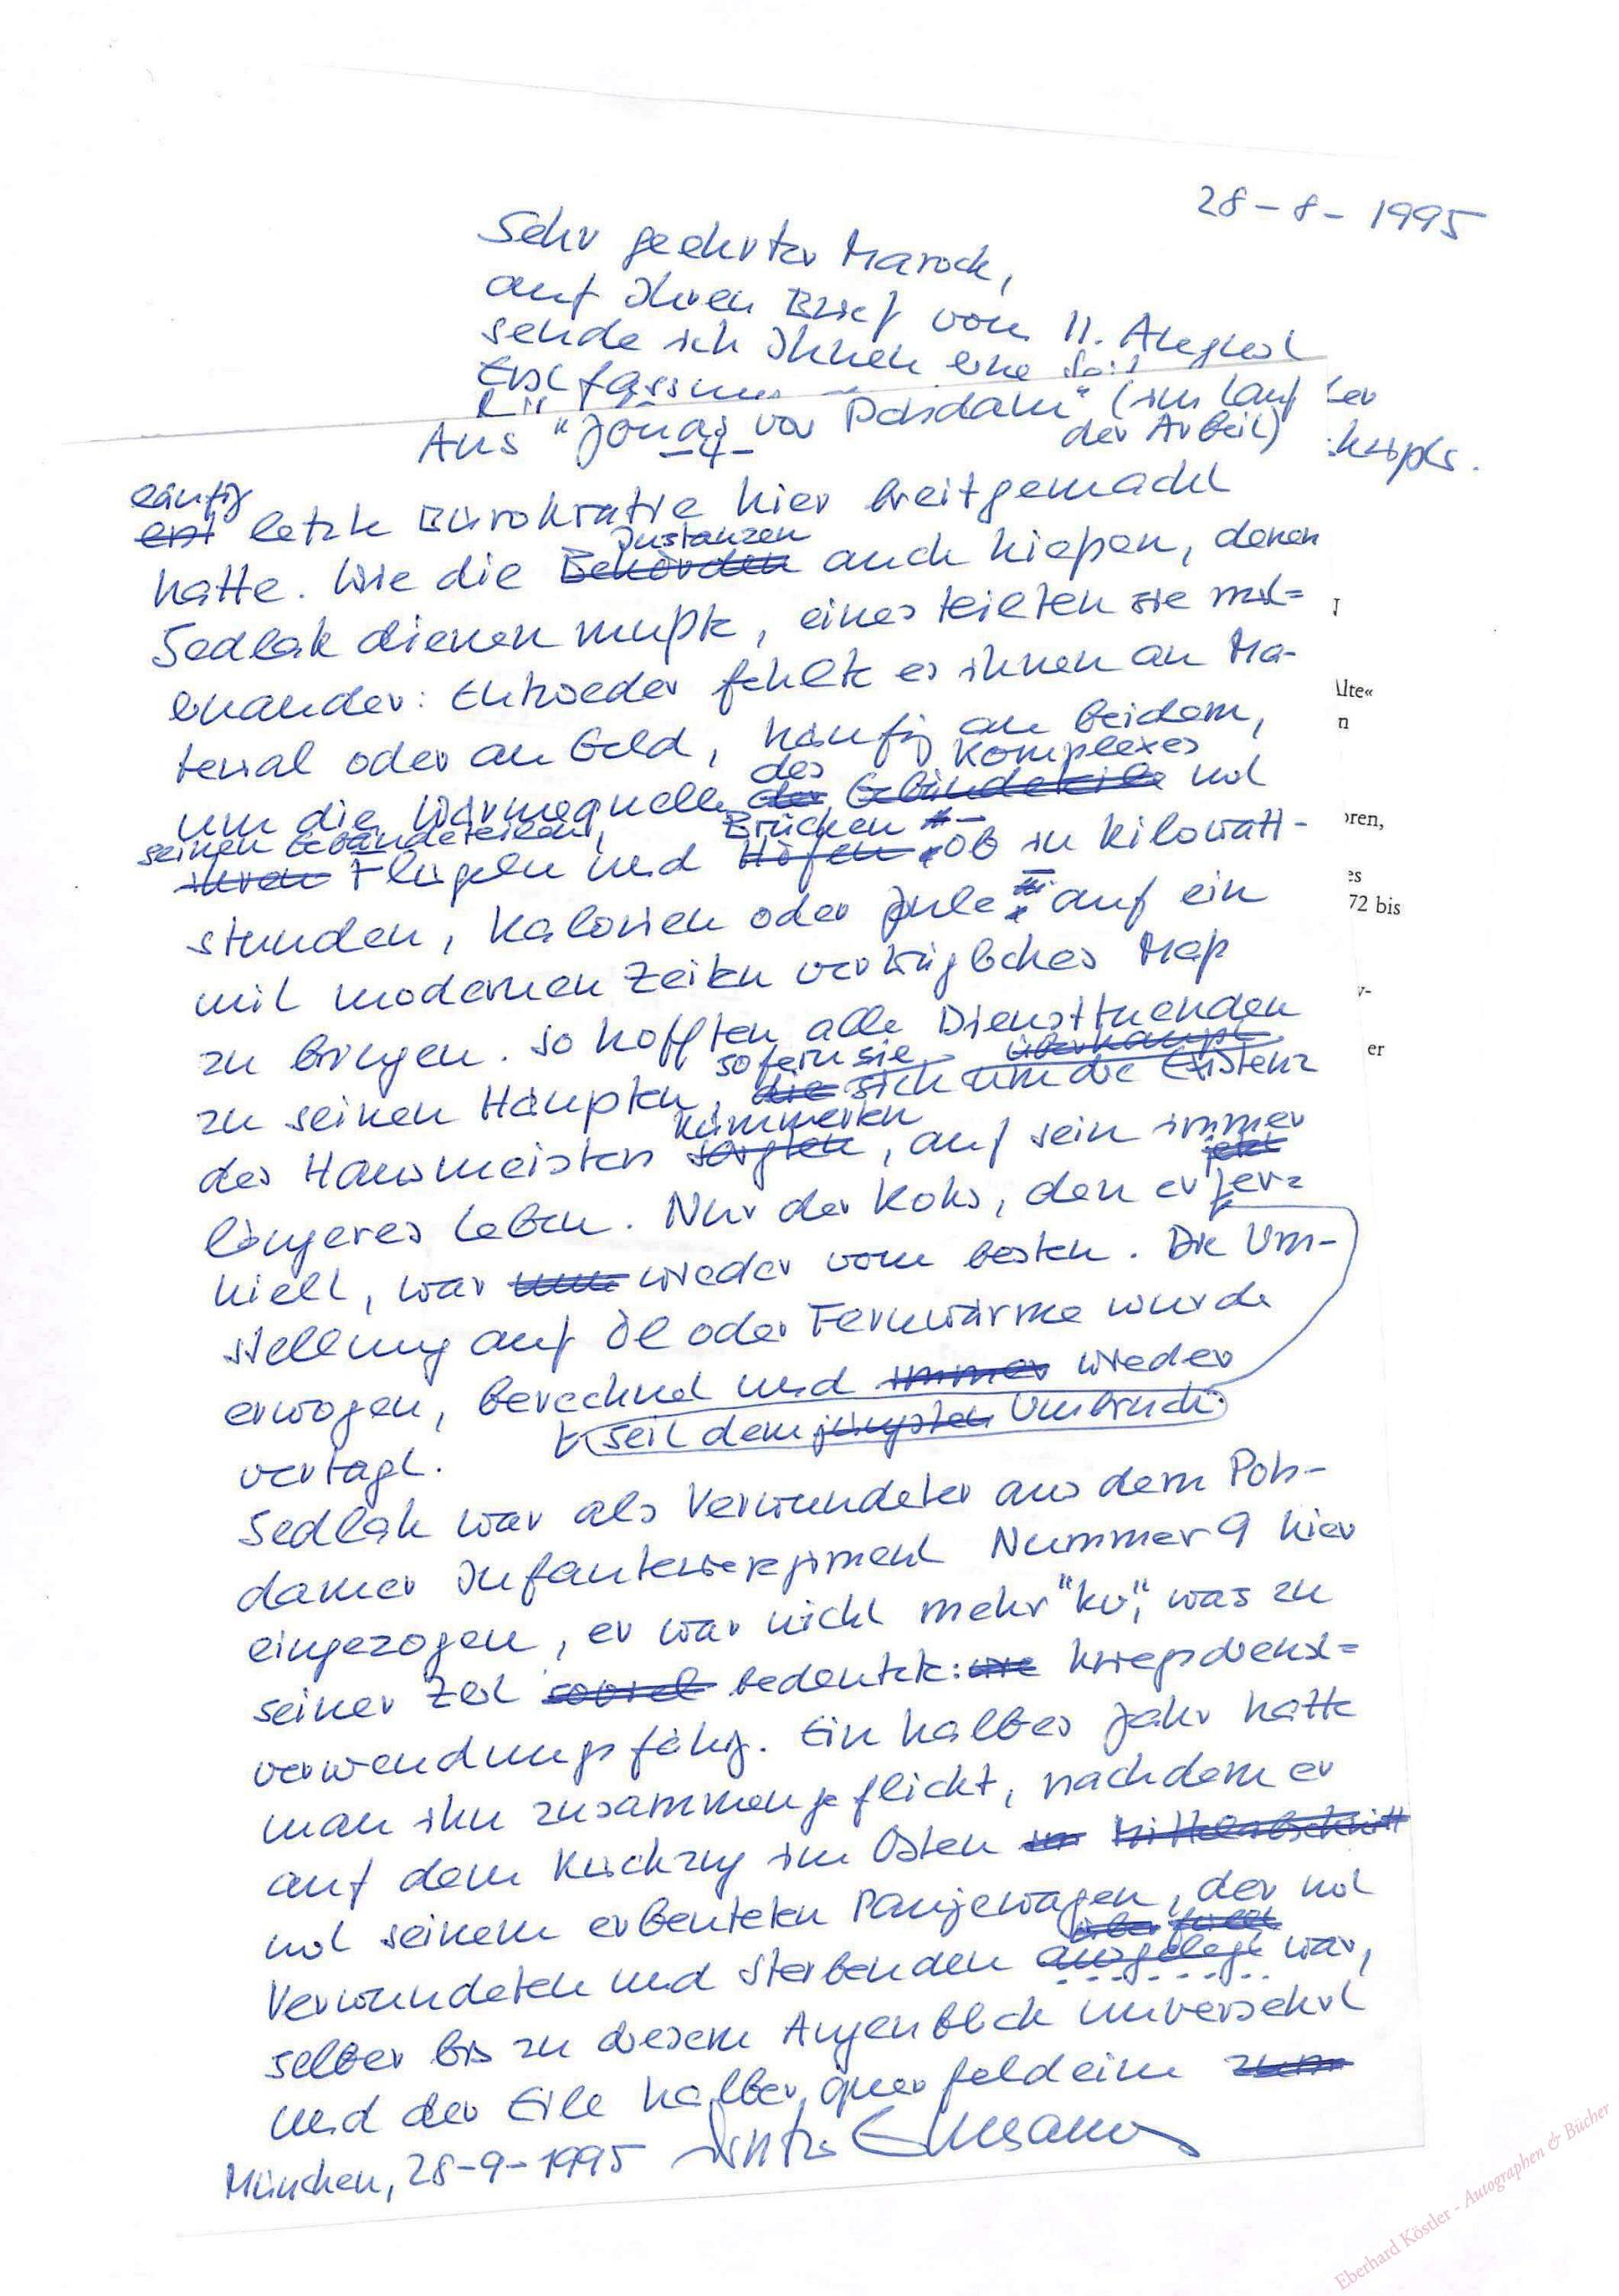 28-8-1995
Sehr geehrter Marock,
auf Ihren Brief vom 11. August
sende ich Ihnen eine
Erstfassung
Aus "Jonas vor Potsdam" (im Lauf
der Arbeit)
läufig
erst letzte Bürokratie hier breitgemacht
Instanzen
hatte. Wie die Behörden auch hießen, denen
Sedlak dienen mußte, eines teilten sie mit=
einander: Entweder fehlte es ihnen an Ma-
terial oder an Geld, häufig an beidem,
des Komplexes
um die Wärmequelle der Gebäudeteile mit
seinen Gebäudeteilen, Brücken
ihren Flügeln und Höfen ob in Kilowatt-
stunden, Kalorien oder Jule auf ein
mit modernen Zeiten verträgliches Maß
zu bringen. So hofften alle Diensttuenden
sofern sie überhaupt
zu seinen Häupten, die sich um die Existenz
kümmerten
des Hausmeisters sorgten, auf sein immer
jetzt
längeres Leben. Nur der Koks, den er er=
hielt, war nun wieder vom besten. Die Um-
stellung auf Öl oder Fernwärme wurde
erwogen, berechnet und immer wieder
seit dem jüngsten Umbruch
vertagt.
Sedlak war als Verwundeter aus dem Pots-
damer Infanterieregiment Nummer 9 hier
eingezogen, er war nicht mehr "kv", was zu
seiner Zeit soviel bedeutete: wie kriegsdienst=
verwendungsfähig. Ein halbes Jahr hatte
man ihn zusammengeflickt, nachdem er
auf dem Rückzug im Osten im Mittelabschnitt
mit seinem erbeuteten Panjewagen, der mit
über füllt
Verwundeten und Sterbenden ausgelegt war,
selber bis zu diesem Augenblick unversehrt
und der Eile halber querfeldein zum
München, 28-9-1995
lte«
n
oren,
es
72 bis
v-
er
Eberhard Köstler - Autographen & Bücher